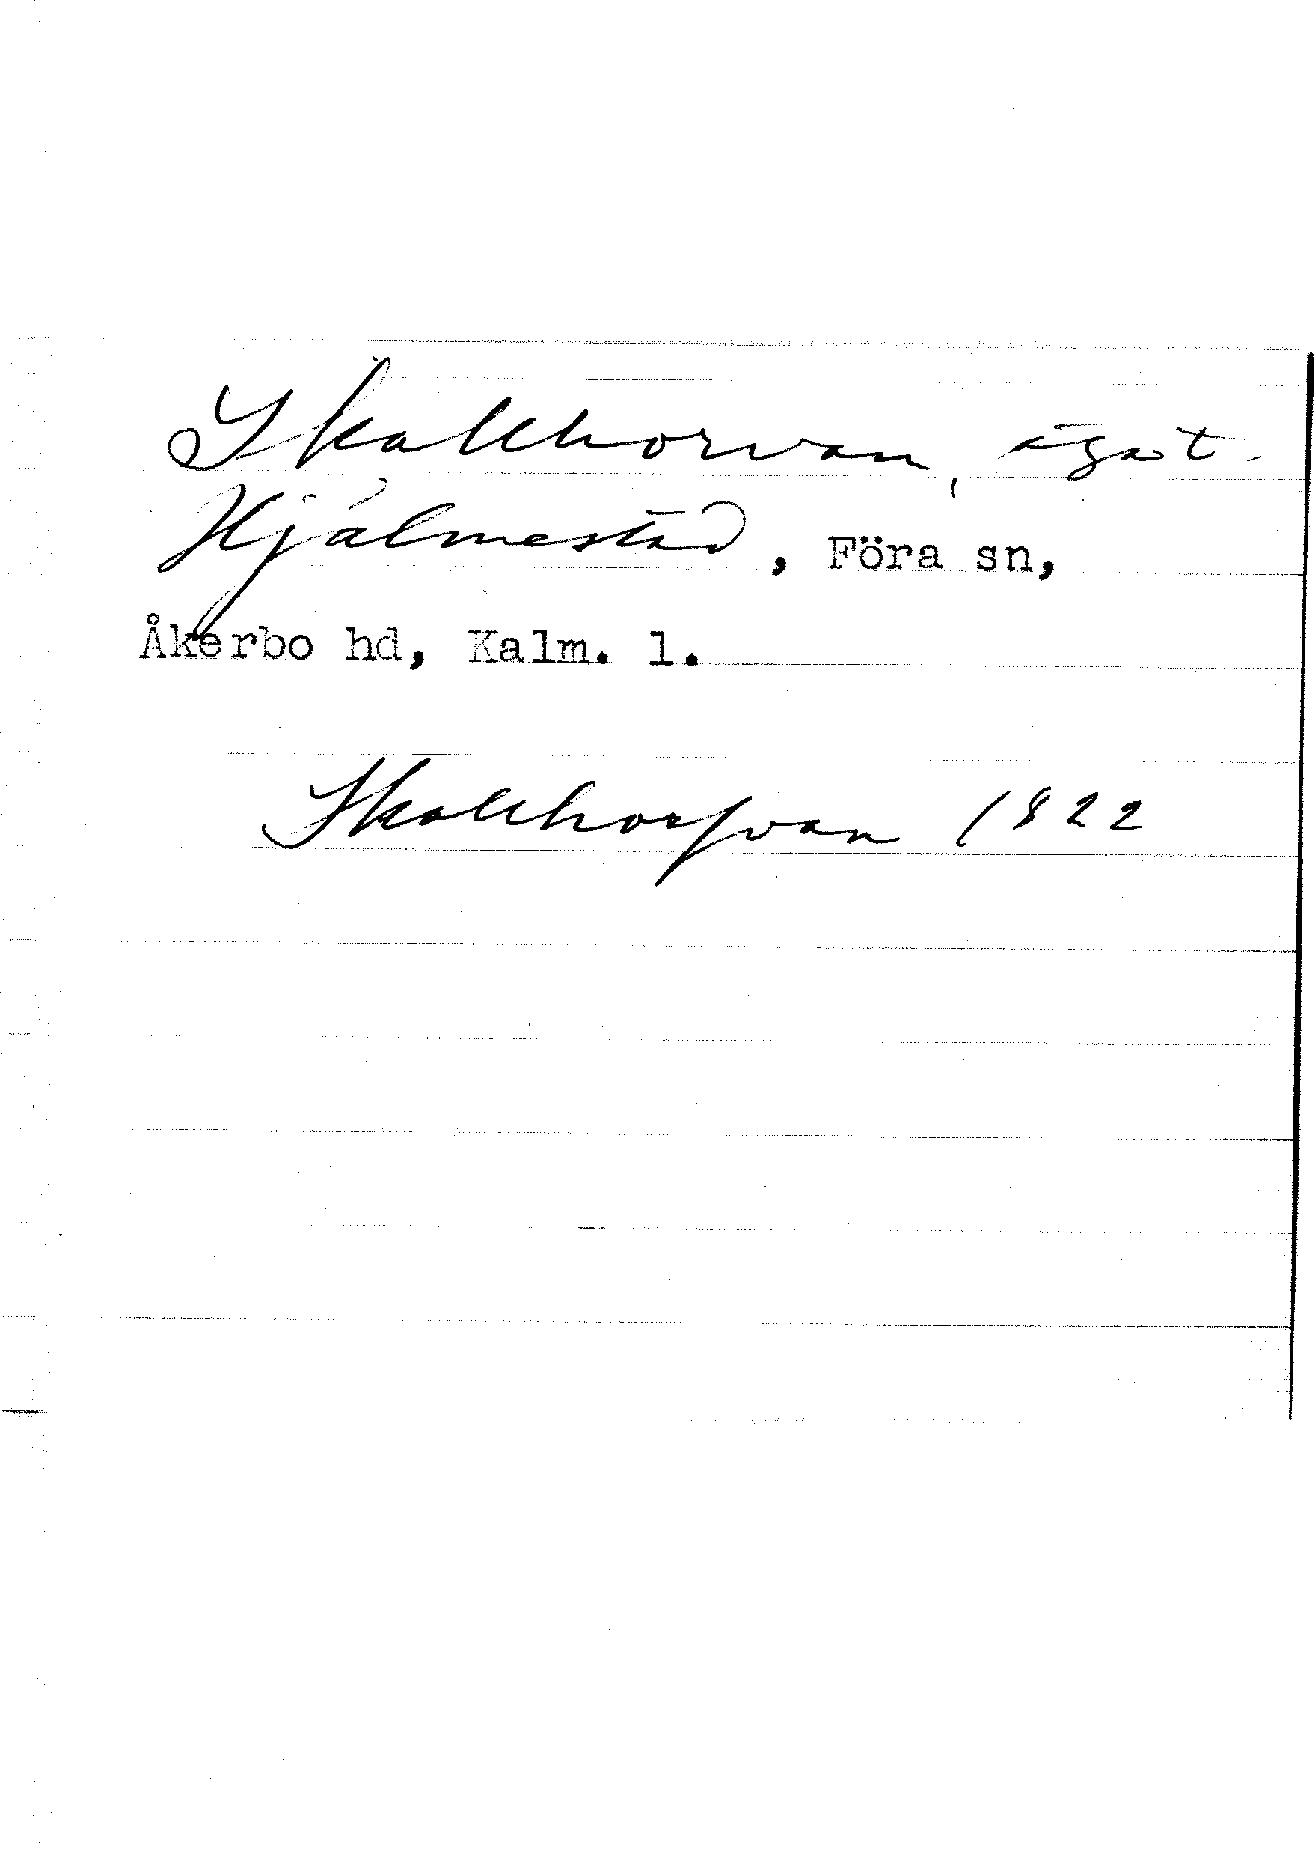 Skallhorvan, ägor t.
Hjälmestad, Föra sn,
Åkerbo hd, Kalm. l.
Skallhorfvan 1822